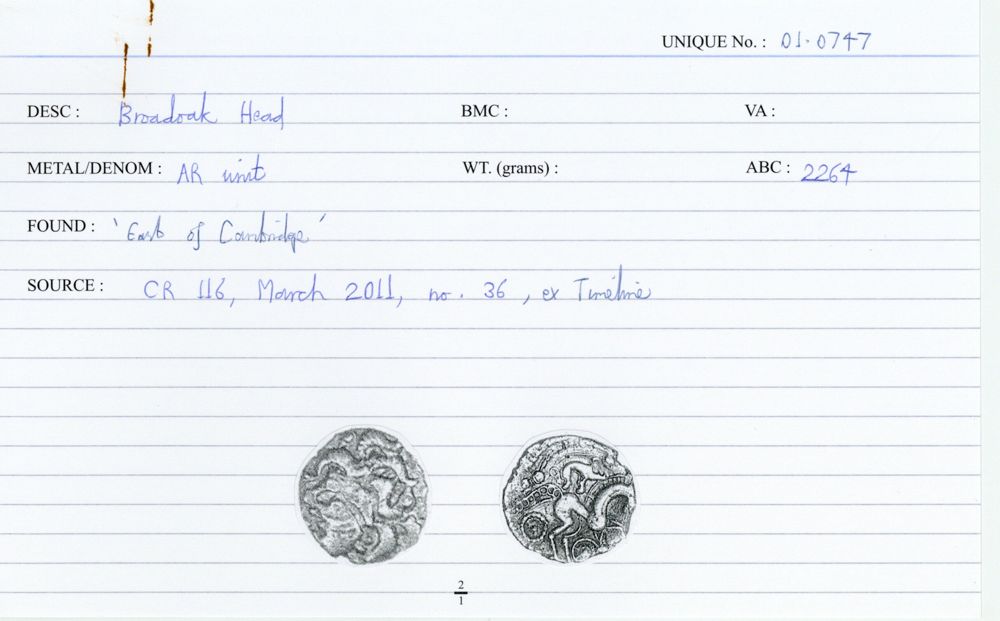 UNIQUE No. : 01-0747
DESC : Broadoak Head BMC : VA :
METAL/DENOM : AR unit WT. (grams) : ABC : 2264
FOUND : 'East of Cambridge'
SOURCE : CR 116, March 2011, no. 36, ex Timeline
2
1